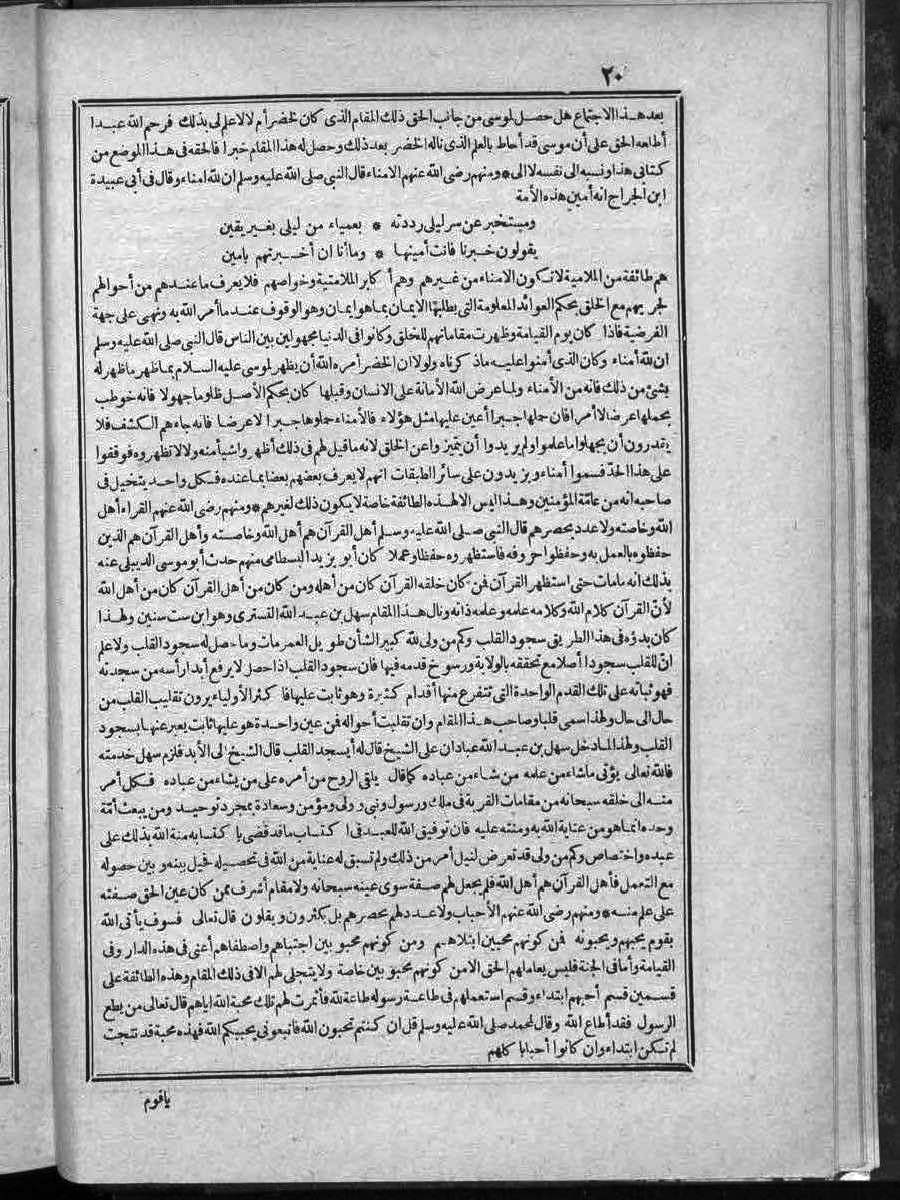 ٢٠
بعد هذا الاجتماع هل حصل لموسى من جانب الحق ذلك المقام الذى كان لخضر أم لا لا علم لى بذلك فرحم الله عبدا
أطلعه الحق على أن موسى قد أحاط بالعلم الذى ناله الخضر بعد ذلك وحصل له هذا المقام خبرا فألحقه فى هذا الموضع من
كتابى هذا ونسبه الى نفسه لا الى * ومنهم رضى الله عنهم الامناء قال النبى صلى الله عليه وسلم ان لله امناء وقال فى أبى عبيدة
ابن الجراح انه أمين هذه الأمة
ومستخبر عن سر ليلى رددته * بعمياء من ليلى بغير يقين
يقولون خبرنا فانت أمينها * وما أنا ان أخبرتهم بامين
هم طائفة من الملامية لا تكون الامناء من غيرهم وهم أكابر الملامتية وخواصهم فلا يعرف ما عندهم من أحوالهم
لجريهم مع الخلق بحكم العوائد المعلومة التى يطلبها الايمان بما هو ايمان وهو الوقوف عند ما أمر الله به ونهى على جهة
الفرضية فاذا كان يوم القيامة وظهرت مقاماتهم للخلق وكانوا فى الدنيا مجهولين بين الناس قال النبى صلى الله عليه وسلم
ان لله أمناء وكان الذى أمنوا عليه ما ذكرناه ولولا ان الخضر أمره الله أن يظهر لموسى عليه السلام بما ظهر ما ظهر له
بشئ من ذلك فانه من الأمناء ولما عرض الله الأمانة على الانسان وقبلها كان بحكم الأصل ظلوما جهولا فانه خوطب
بحملها عرضا لا أمرا فان حملها جبرا أعين عليها مثل هؤلاء فالأمناء حملوها جبرا لا عرضا فانه جاءهم الكشف فلا
يقدرون أن يجهلوا ما علموا ولم يريدوا أن يتميزوا عن الخلق لانه ما قيل لهم فى ذلك أظهروا شيأ منه ولا لا تظهروه فوقفوا
على هذا الحد فسموا أمناء ويزيدون على سائر الطبقات انهم لا يعرف بعضهم بعضا بما عنده فكل واحد يتخيل فى
صاحبه انه من عامّة المؤمنين وهذا ليس الا لهذه الطائفة خاصة لا يكون ذلك لغيرهم * ومنهم رضى الله عنهم القراء أهل
الله وخاصته ولا عدد يحصرهم قال النبى صلى الله عليه وسلم أهل القرآن هم أهل الله وخاصته وأهل القرآن هم الذين
حفظوه بالعمل به وحفظوا حروفه فاستظهروه حفظا وعملا كان أبو يزيد البسطامى منهم حدث أبو موسى الديبلى عنه
بذلك انه ما مات حتى استظهر القرآن فمن كان خلقه القرآن كان من أهله ومن كان من أهل القرآن كان من أهل الله
لأنّ القرآن كلام الله وكلامه علمه وعلمه ذاته ونال هذا المقام سهل بن عبد الله التسترى وهو ابن ست سنين ولهذا
كان بدؤه فى هذا الطريق سجود القلب وكم من ولى لله كبير الشأن طويل العمر مات وما حصل له سجود القلب ولا علم
انّ للقلب سجودا أصلا مع تحققه بالولاية ورسوخ قدمه فيها فان سجود القلب اذا حصل لا يرفع أبدا رأسه من سجدته
فهو ثباته على تلك القدم الواحدة التى تتفرع منها أقدام كثيرة وهو ثابت عليها فاكثر الأولياء يرون تقليب القلب من
حال الى حال ولهذا سمى قلبا وصاحب هذا المقام وان تقلبت أحواله فمن عين واحدة هو عليها ثابت يعبر عنها بسجود
القلب ولهذا لما دخل سهل بن عبد الله عبادان على الشيخ قال له أيسجد القلب قال الشيخ الى الأبد فلزم سهل خدمته
فالله تعالى يؤتى ما شاء من علمه من شاء من عباده كما قال يلقى الروح من أمره على من يشاء من عباده فكل أمر
منه الى خلقه سبحانه من مقامات القربة فى ملك ورسول ونبى وولى ومؤمن وسعادة بمجرد توحيد ومن يبعث أمّة
وحده انما هو من عناية الله به ومنته عليه فان توفيق الله للعبد فى اكتساب ما قد قضى باكتسابه منة الله بذلك على
عبده واختصاص وكم من ولى قد تعرض لنيل أمر من ذلك ولم تسبق له عناية من الله فى تحصيله فحيل بينه وبين حصوله
مع التعمل فأهل القرآن هم أهل الله فلم يجعل لهم صفة سوى عينه سبحانه ولا مقام أشرف ممن كان عين الحق صفته
على علم منه * ومنهم رضى الله عنهم الأحباب ولا عدد لهم يحصرهم بل يكثرون ويقلون قال تعالى فسوف يأتى الله
بقوم يحبهم ويحبونه فمن كونهم محبين ابتلاهم ومن كونهم محبوبين اجتباهم واصطفاهم أعنى فى هذه الدار وفى
القيامة وأما فى الجنة فليس يعاملهم الحق الا من كونهم محبوبين خاصة ولا يتجلى لهم الا فى ذلك المقام وهذه الطائفة على
قسمين قسم أحبهم ابتداء وقسم استعملهم فى طاعة رسوله طاعة لله فأثمرت لهم تلك محبة الله اياهم قال تعالى من يطع
الرسول فقد أطاع الله وقال لمحمد صلى الله عليه وسلم قل ان كنتم تحبون الله فاتبعونى يحببكم الله فهذه محبة قد نتجت
لم تكن ابتداء وان كانوا أحبابا كلهم
ياقوم